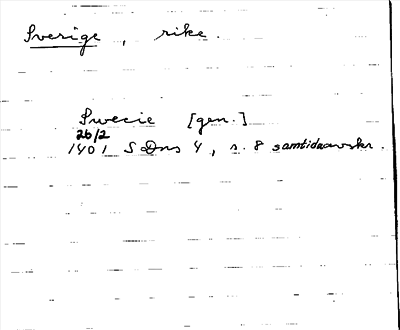 Sverige, rike.
Swecie [gen.]
26/2
1401 SDns 4, s. 8 samtida avskr.